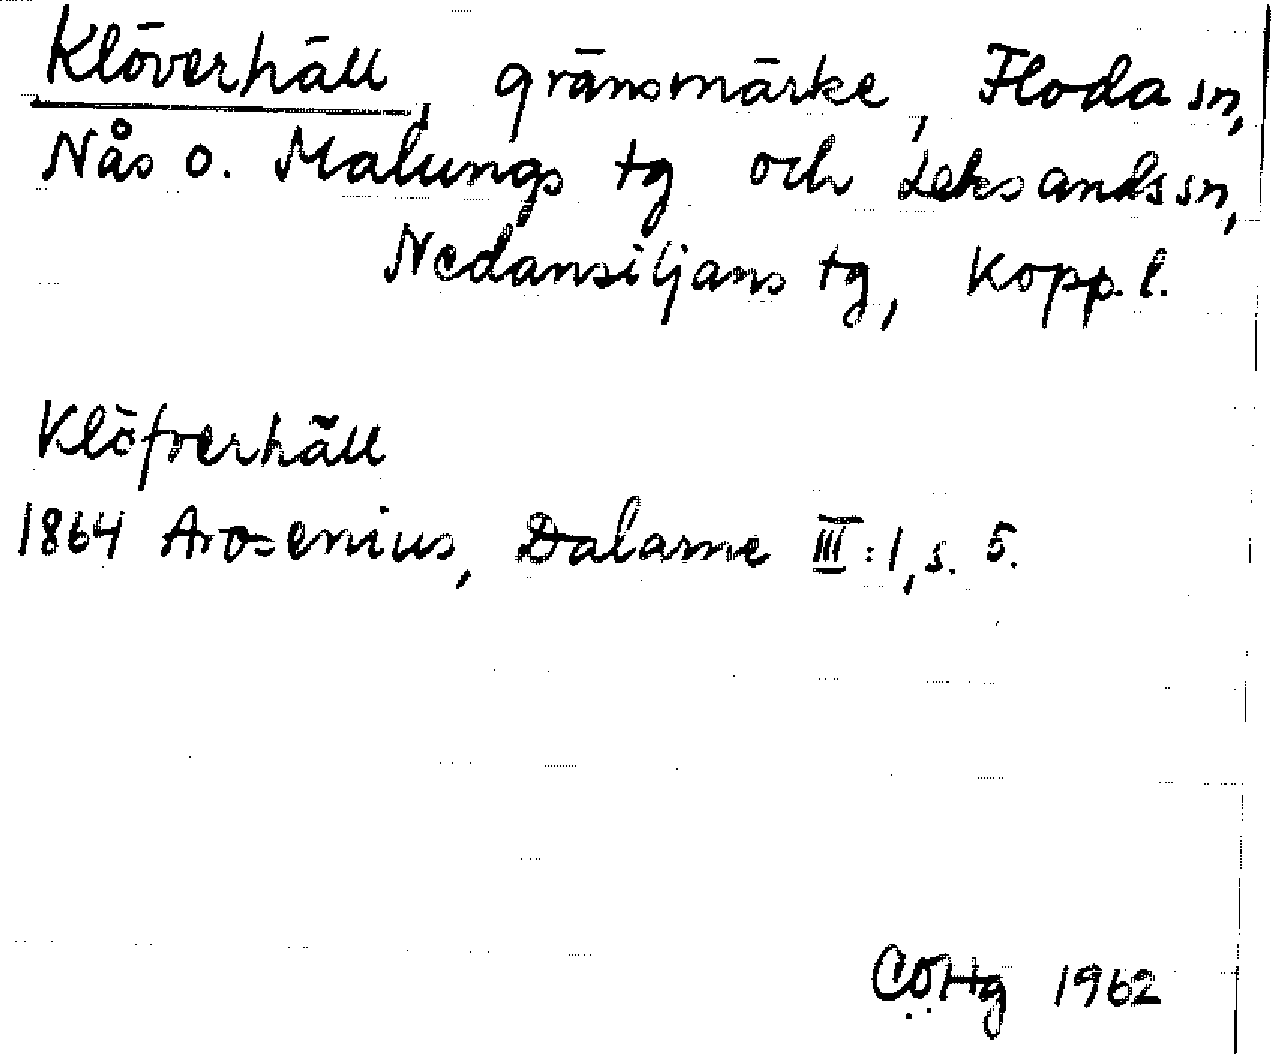 Klöverhäll, gränsmärke, Floda sn,
Nås o. Malungs tg och Leksands sn,
Nedansiljans tg, Kopp. l.
Klöfverhäll
1864 Arosenius, Dalarne III:1, s. 5.
CÖHg 1962